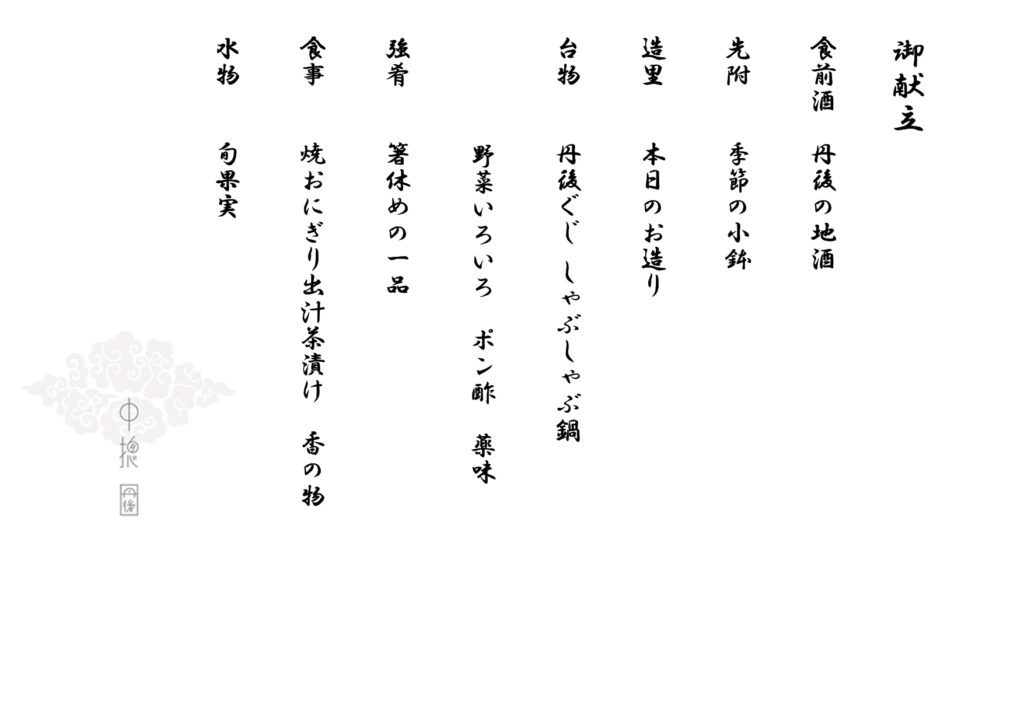 御献立
食前酒　丹後の地酒
先附　季節の小鉢
造里　本日のお造り
台物　丹後ぐじ しゃぶしゃぶ鍋
野菜いろいろ　ポン酢　薬味
強肴　箸休めの一品
食事　焼おにぎり出汁茶漬け　香の物
水物　旬果実
中
丹後